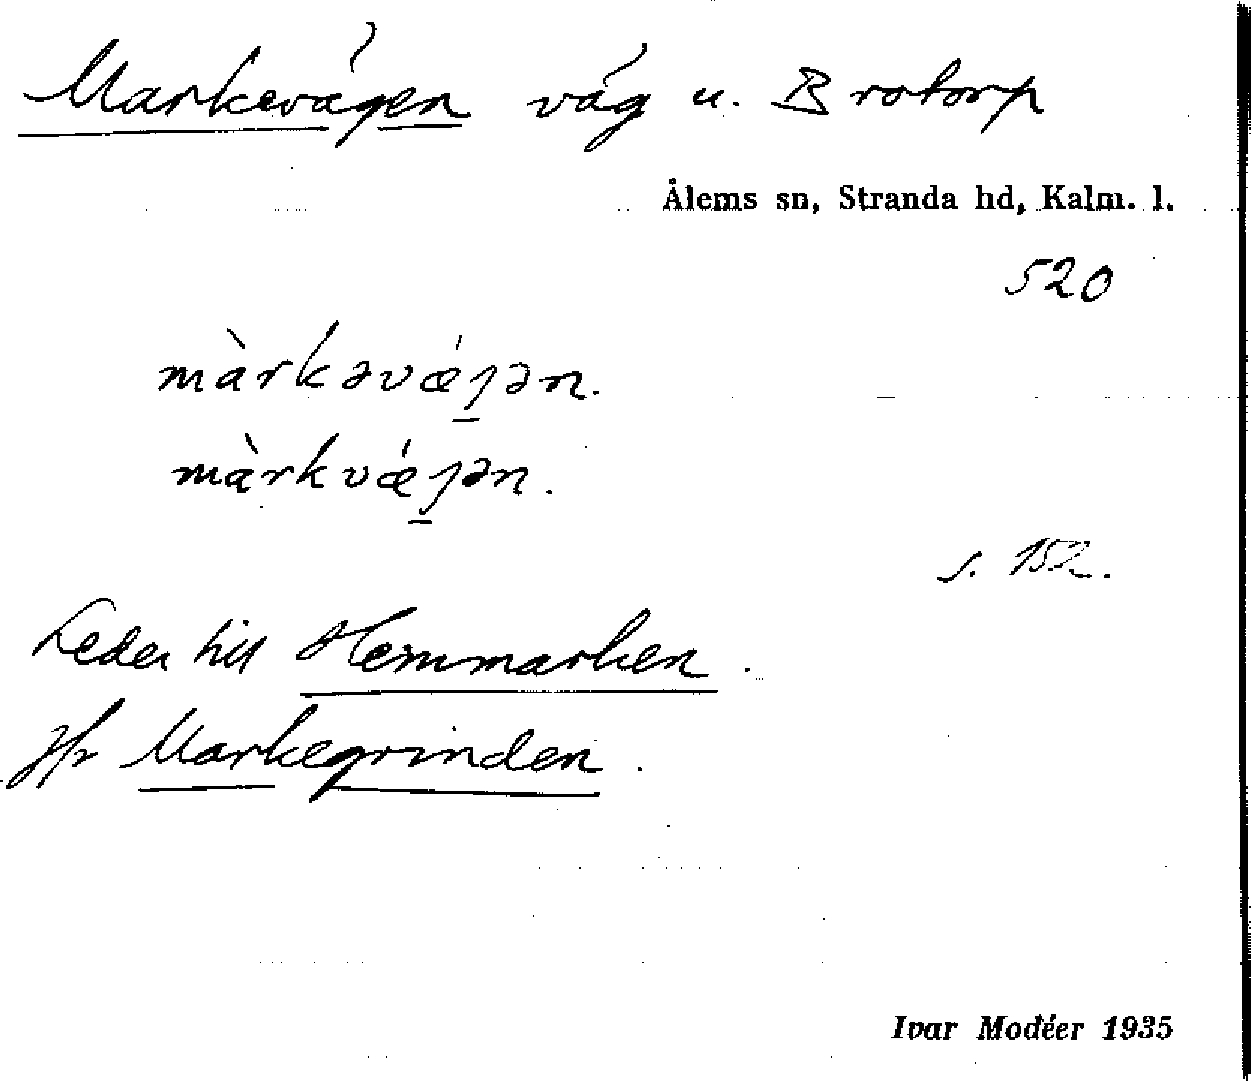 Markevägen väg u. Brotorp
Ålems sn, Stranda hd, Kalm. l.
520
màrkəvǽȷən.
màrkvǽȷən.
s. 152.
Leder till Hemmarken.
Jfr Markegrinden.
Ivar Modéer 1935